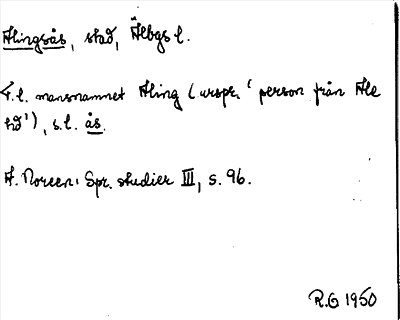 Alingsås, stad, Älvbgs l.
F.l. mansnamnet Aling (urspr. 'person från Ale
hd'), s.l. ås.
A. Noreen: Spr. studier III, s. 96.
R.G 1950